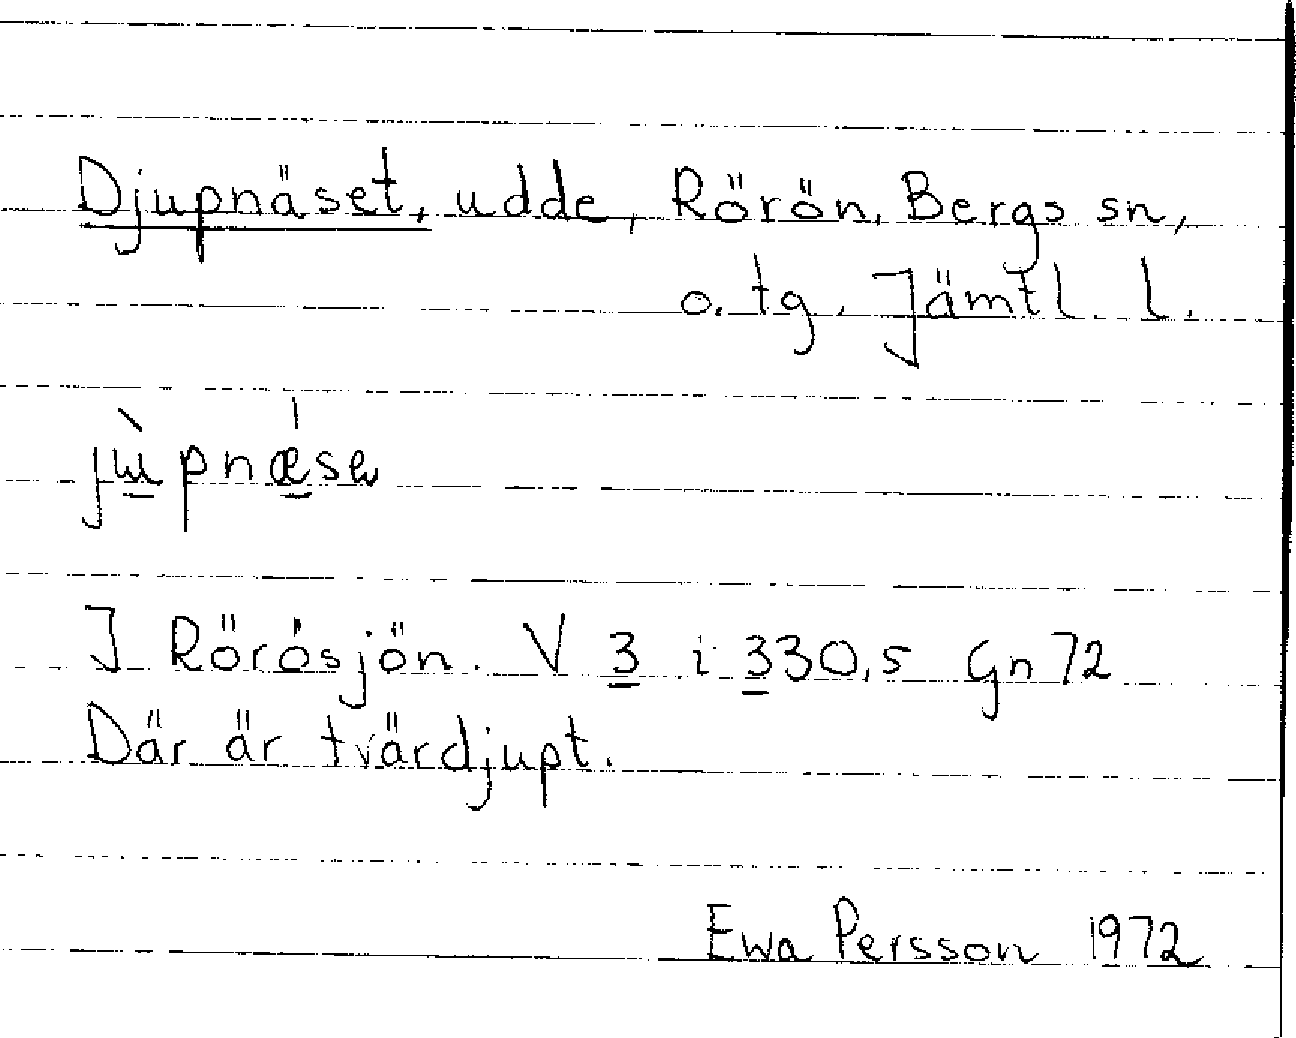 Djupnäset, udde, Rörön, Bergs sn,
o. tg. Jämtl. l.
jɯ̱̀pnǽ̱sɐ
I Rörösjön. V 3 i 330,5 Gn 72
Där är tvärdjupt.
Ewa Persson 1972